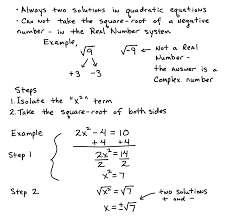 • Always two solutions in quadratic equations
• Can not take the square-root of a negative
number - in the Real Number system
Example,
√9
√-9 ← Not a Real
Number -
the Answer is a
Complex number
+3 -3
Steps
1. Isolate the "x²" term
2. Take the square-root of both sides
Example 2x² - 4 = 10
+4 +4
Step 1 2x² = 14
2 2
x² = 7
Step 2 √x² = √7
two solutions
+ and -
x = ±√7